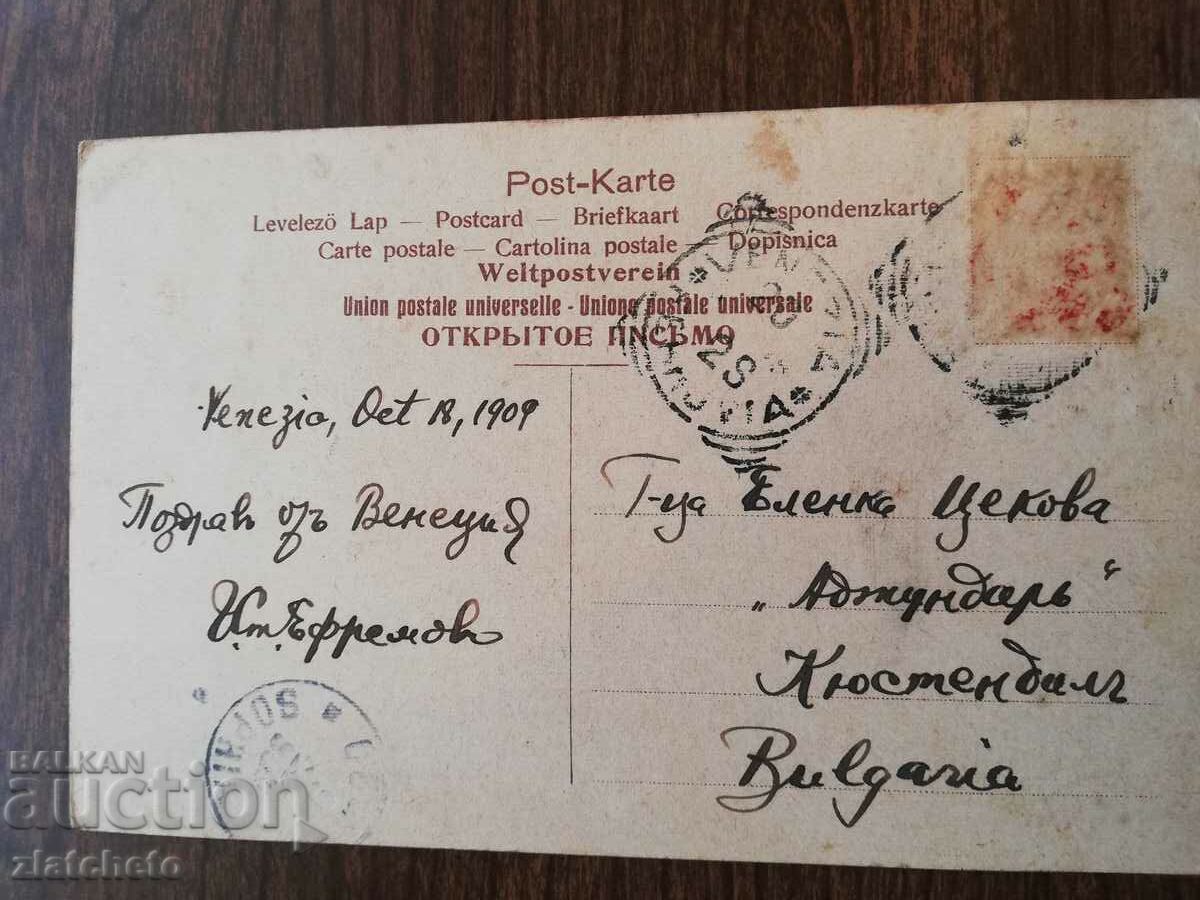 Post-Karte
Levelezö Lap — Postcard — Briefkaart — Correspondenzkarte
Carte postale — Cartolina postale — Dopisnica
Weltpostverein
Union postale universelle - Unione postale universale
ОТКРЫТОЕ ПИСЬМО
Venezia, Oct 18, 1909
Поздрав отъ Венеция
Ст. Ефремовъ
Г-ца Еленка Цекова
„Аджундаръ“
Кюстендилъ
Bulgaria
SOPHIA
BALKAN
auction
zlatcheto